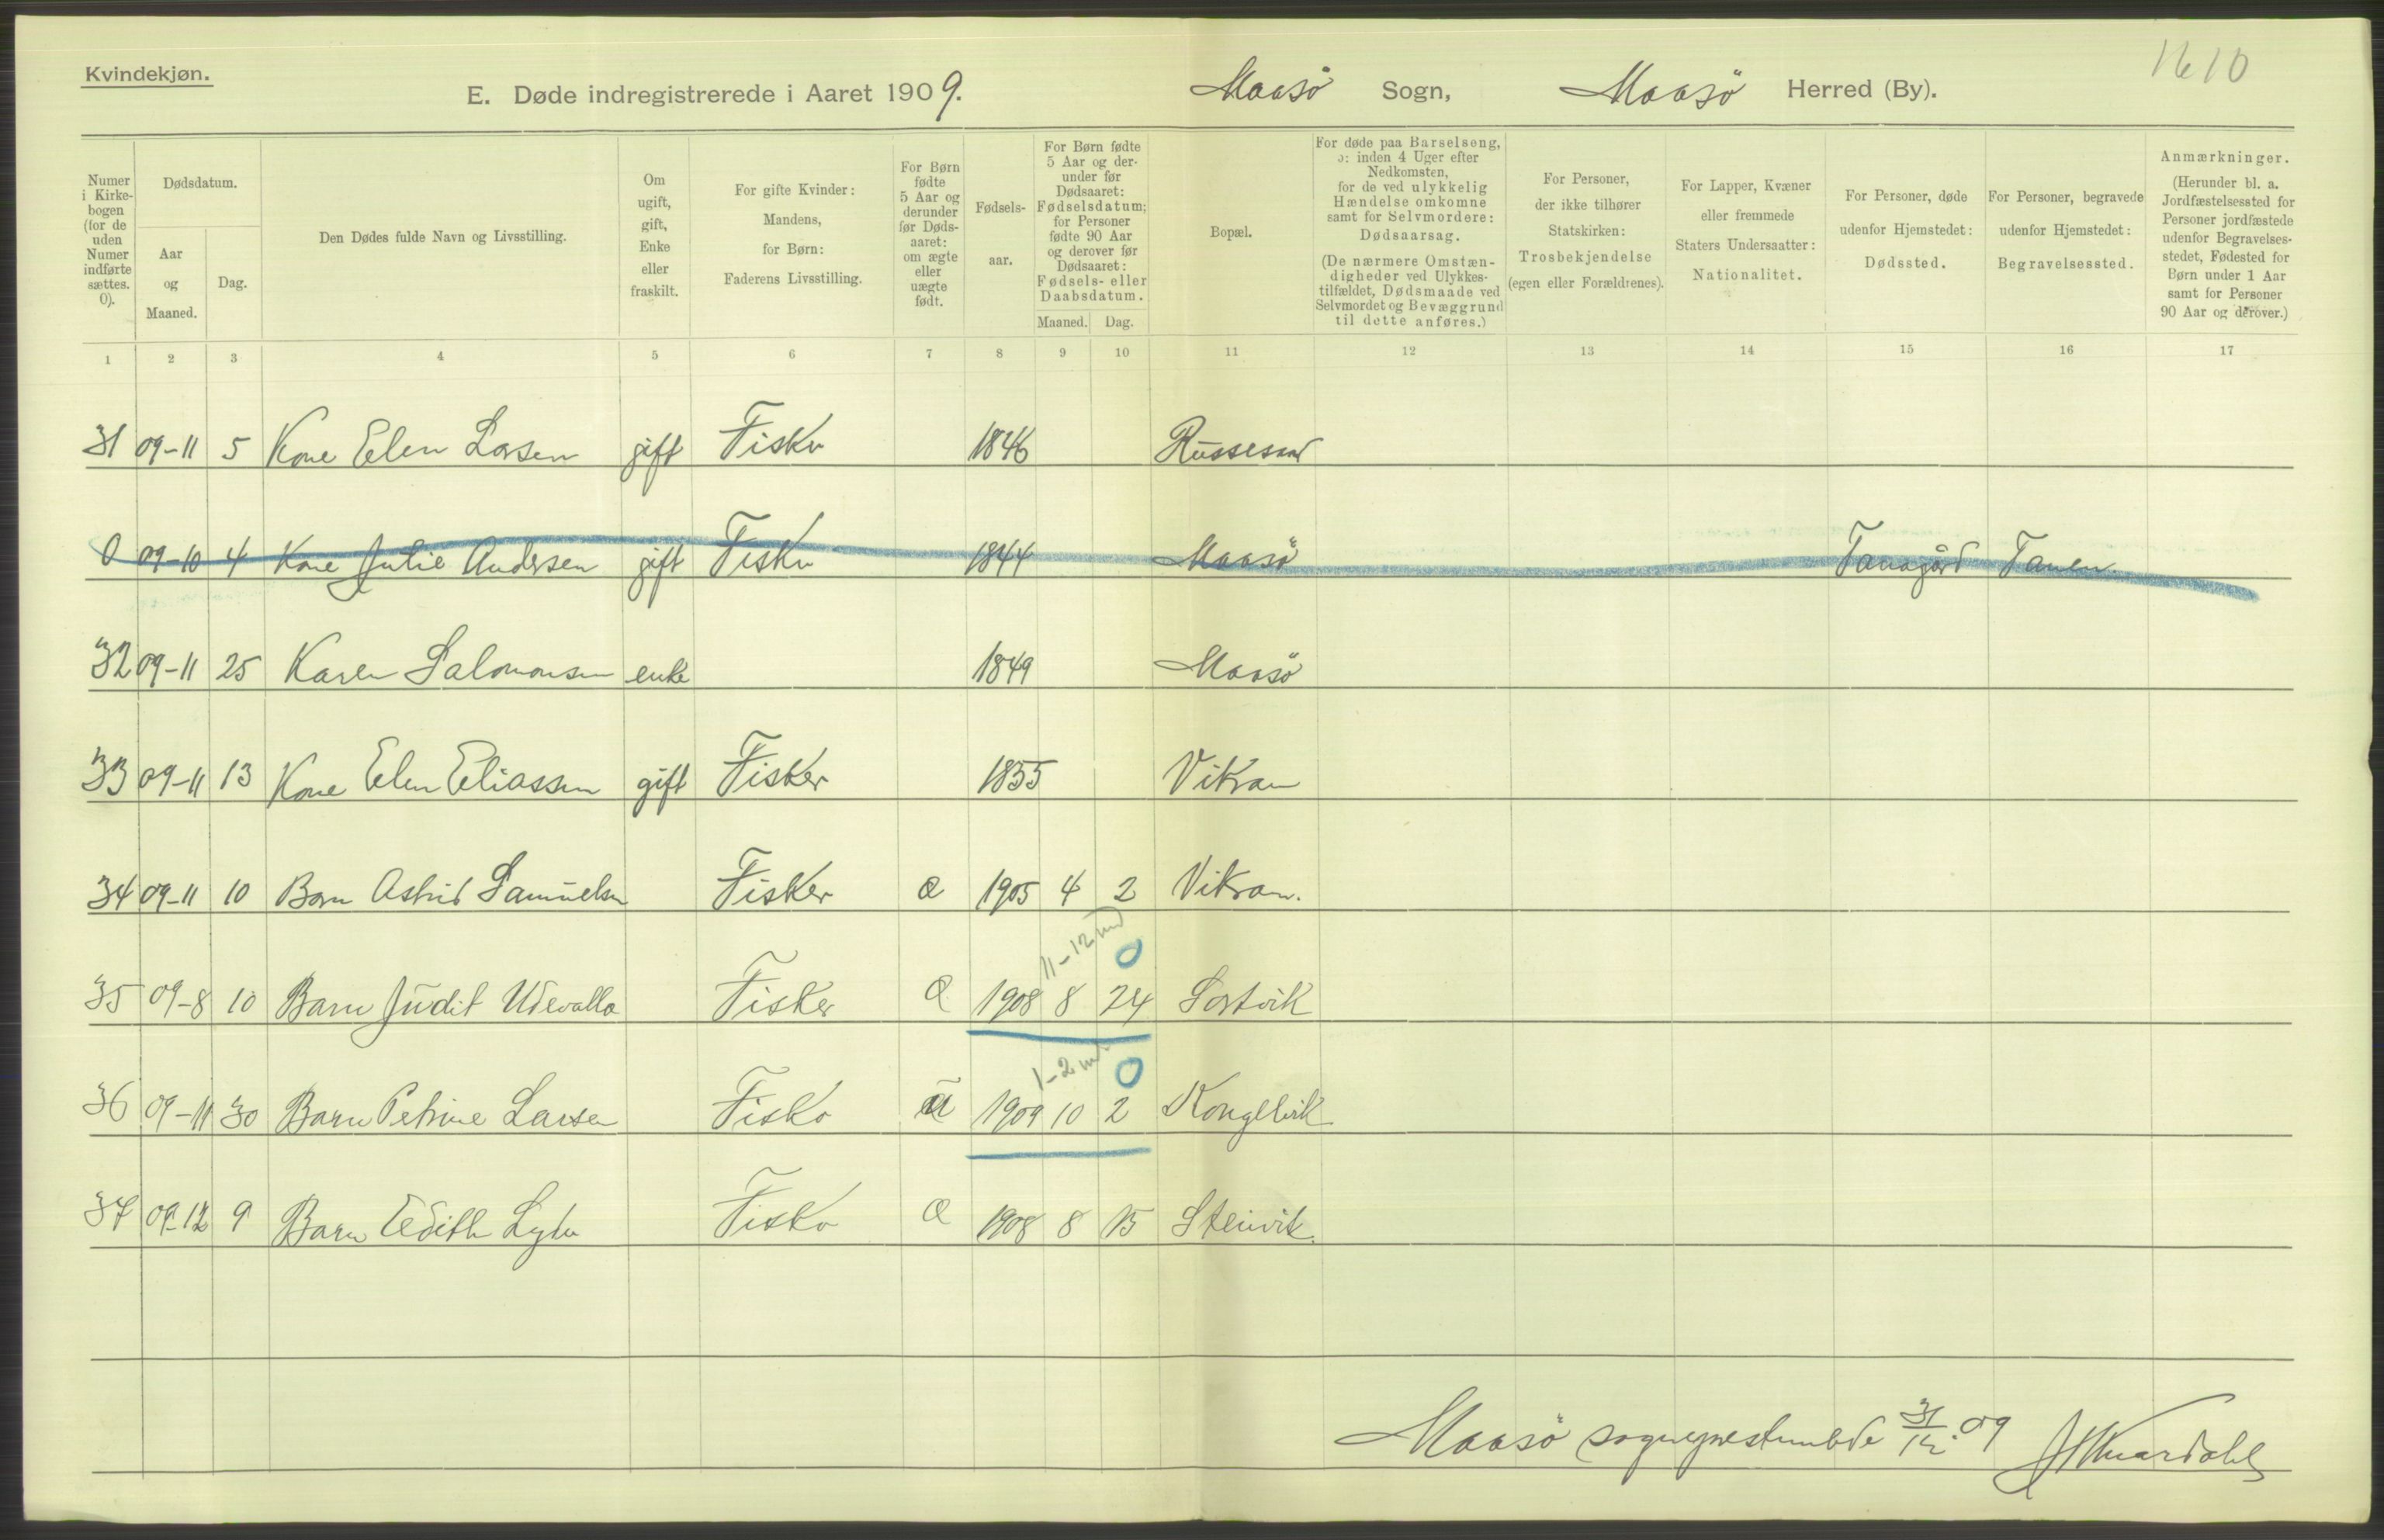 Kvindekjøn.
1610
E. Døde indregistrerede i Aaret 1909. Maasö Sogn, Maasö Herred (By).
Numer i Kirke-bogen (for de uden Numer indførte sættes. 0).
Dødsdatum.
Aar og Maaned.
Dag.
Den Dødes fulde Navn og Livsstilling.
Om ugift, gift, Enke eller fraskilt.
For gifte Kvinder: Mandens, for Børn: Faderens Livsstilling.
For Børn fødte 5 Aar og derunder før Døds-aaret: om ægte eller uægte født.
Fødsels-aar.
For Børn fødte 5 Aar og der-under før Dødsaaret: Fødselsdatum; for Personer fødte 90 Aar og derover før Dødsaaret: Fødsels- eller Daabsdatum.
Maaned. Dag.
Bopæl.
For døde paa Barselseng, ɔ: inden 4 Uger efter Nedkomsten, for de ved ulykkelig Hændelse omkomne samt for Selvmordere: Dødsaarsag. (De nærmere Omstæn-digheder ved Ulykkes-tilfældet, Dødsmaade ved Selvmordet og Bevæggrund til dette anføres.)
For Personer, der ikke tilhører Statskirken: Trosbekjendelse (egen eller Forældrenes).
For Lapper, Kvæner eller fremmede Staters Undersaatter: Nationalitet.
For Personer, døde udenfor Hjemstedet: Dødssted.
For Personer, begravede udenfor Hjemstedet: Begravelsessted.
Anmærkninger. (Herunder bl. a. Jordfæstelsessted for Personer jordfæstede udenfor Begravelses-stedet, Fødested for Børn under 1 Aar samt for Personer 90 Aar og derover.)
1 2 3 4 5 6 7 8 9 10 11 12 13 14 15 16 17
31 09-11 5 Kone Elen Larsen gift Fisker 1846 Russesund
0 09-10 4 Kone Julie Andersen gift Fisker 1844 Maasö Tanagård Tanen.
32 09-11 25 Karen Salomonsen enke 1849 Maasö
33 09-11 13 Kone Elen Eliassen gift Fisker 1855 Vikran
34 09-11 10 Barn Astrid Samuelsen Fisker æ 1905 4 2 Vikran.
11-12 md 0
35 09-8 10 Barn Judit Udevalla Fisker æ 1908 8 24 Sortvik
1-2 md 0
36 09-11 30 Barn Petrine Larsen Fisker u 1909 10 2 Kongelvik
37 09-12 9 Barn Edith Lyder Fisker æ 1908 8 15 Steinvik.
Maasö sogneprestembede 31/12 09